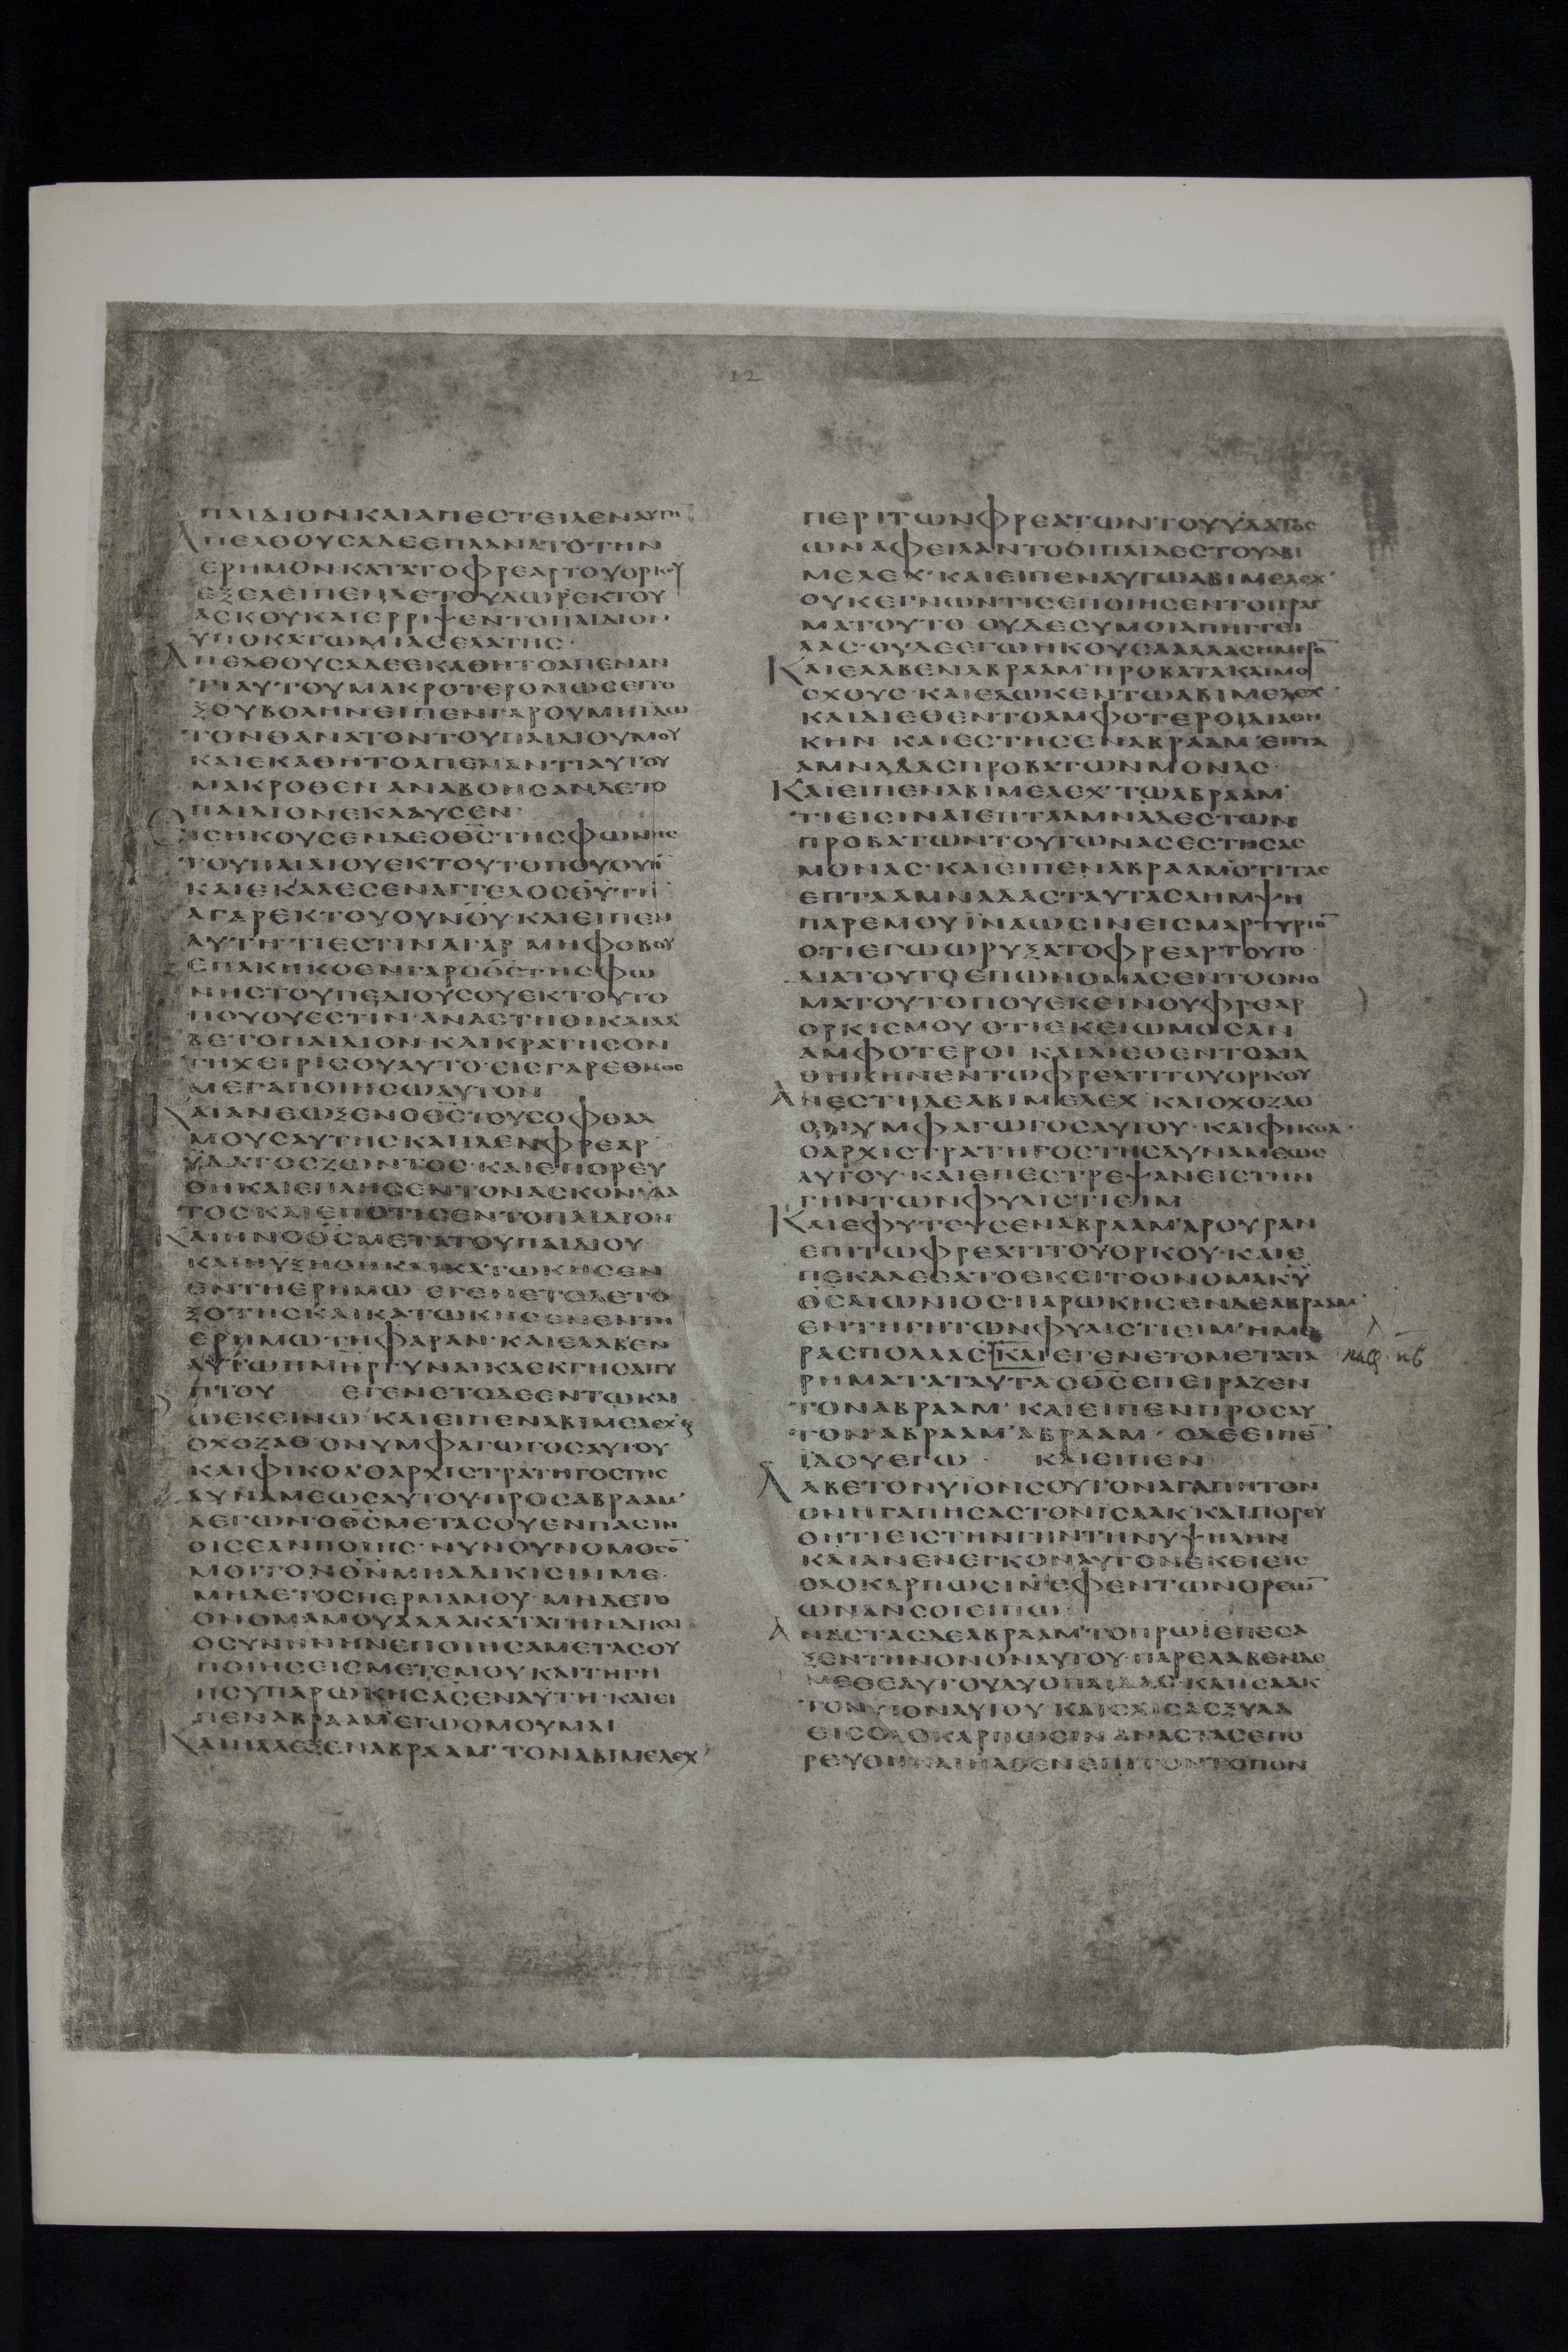 22
ΠΑΙΔΙΟΝΚΑΙΑΠΕΣΤΕΙΛΕΝΑΥΤΗ
ΑΠΕΛΘΟΥΣΑΔΕΕΠΛΑΝΑΤΟΤΗΝ
ΕΡΗΜΟΝΚΑΤΑΤΟΦΡΕΑΡΤΟΥΟΡΚΟΥ
ΕΞΕΛΕΙΠΕΝΔΕΤΟΥΔΩΡΕΚΤΟΥ
ΑΣΚΟΥΚΑΙΕΡΡΙΨΕΝΤΟΠΑΙΔΙΟΝ
ΥΠΟΚΑΤΩΜΙΑΣΕΛΑΤΗΣ·
ΑΠΕΛΘΟΥΣΑΔΕΕΚΑΘΗΤΟΑΠΕΝΑΝ
ΤΙΑΥΤΟΥΜΑΚΡΟΤΕΡΟΝΩΣΕΙΤΟ
ΞΟΥΒΟΛΗΝΕΙΠΕΝΓΑΡΟΥΜΗΙΔΩ
ΤΟΝΘΑΝΑΤΟΝΤΟΥΠΑΙΔΙΟΥΜΟΥ
ΚΑΙΕΚΑΘΗΤΟΑΠΕΝΑΝΤΙΑΥΤΟΥ
ΜΑΚΡΟΘΕΝ·ΑΝΑΒΟΗΣΑΝΔΕΤΟ
ΠΑΙΔΙΟΝΕΚΛΑΥΣΕΝ·
ΕΙΣΗΚΟΥΣΕΝΔΕΟΘ̅Σ̅ΤΗΣΦΩΝΗΣ
ΤΟΥΠΑΙΔΙΟΥΕΚΤΟΥΤΟΠΟΥΟΥΗ̅
ΚΑΙΕΚΑΛΕΣΕΝΑΓΓΕΛΟΣΘ̅Υ̅ΤΗ
ΑΓΑΡΕΚΤΟΥΟΥΝ̅Ο̅Υ̅·ΚΑΙΕΙΠΕΝ
ΑΥΤΗ·ΤΙΕΣΤΙΝΑΓΑΡ·ΜΗΦΟΒΟΥ
ΕΠΑΚΗΚΟΕΝΓΑΡΟΘ̅Σ̅ΤΗΣΦΩ
ΝΗΣΤΟΥΠΕΔΙΟΥΣΟΥΕΚΤΟΥΤΟ
ΠΟΥΟΥΕΣΤΙΝ·ΑΝΑΣΤΗΘΙΚΑΙΛΑ
ΒΕΤΟΠΑΙΔΙΟΝ·ΚΑΙΚΡΑΤΗΣΟΝ
ΤΗΧΕΙΡΙΣΟΥΑΥΤΟ·ΕΙΣΓΑΡΕΘΝΟΣ
ΜΕΓΑΠΟΙΗΣΩΑΥΤΟΝ
ΚΑΙΑΝΕΩΞΕΝΟΘ̅Σ̅ΤΟΥΣΟΦΘΑΛ
ΜΟΥΣΑΥΤΗΣΚΑΙΙΔΕΝΦΡΕΑΡ
ΥΔΑΤΟΣΖΩΝΤΟΣ·ΚΑΙΕΠΟΡΕΥ
ΘΗΚΑΙΕΠΛΗΣΕΝΤΟΝΑΣΚΟΝΥΔΑ
ΤΟΣΚΑΙΕΠΟΤΙΣΕΝΤΟΠΑΙΔΙΟΝ
ΚΑΙΗΝΟΘ̅Σ̅ΜΕΤΑΤΟΥΠΑΙΔΙΟΥ·
ΚΑΙΗΥΞΗΘΗΚΑΙΚΑΤΩΚΗΣΕΝ
ΕΝΤΗΕΡΗΜΩ ΕΓΕΝΕΤΟΔΕΤΟ
ΞΟΤΗΣΚΑΙΚΑΤΩΚΗΣΕΝΕΝΤΗ
ΕΡΗΜΩΤΗΦΑΡΑΝ·ΚΑΙΕΛΑΒΕΝ
ΑΥΤΩΗΜΗΤΗΡΓΥΝΑΙΚΑΕΚΓΗΣΑΙΓΥ
ΠΤΟΥ ΕΓΕΝΕΤΟΔΕΕΝΤΩΚΑΙ
ΩΕΚΕΙΝΩ·ΚΑΙΕΙΠΕΝΑΒΙΜΕΛΕΧϗ
ΟΧΟΖΑΘ·ΟΝΥΜΦΑΓΩΓΟΣΑΥΤΟΥ
ΚΑΙΦΙΚΟΛ·ΟΑΡΧΙΣΤΡΑΤΗΓΟΣΤΗΣ
ΔΥΝΑΜΕΩΣΑΥΤΟΥ·ΠΡΟΣΑΒΡΑΑΜ·
ΛΕΓΩΝ·ΟΘ̅Σ̅ΜΕΤΑΣΟΥΕΝΠΑΣΙΝ
ΟΙΣΕΑΝΠΟΙΗΣ·ΝΥΝΟΥΝΟΜΟΣΟ̅
ΜΟΙΤΟΝΘ̅Ν̅ΜΗΑΔΙΚΙΣΙΝΜΕ·
ΜΗΔΕΤΟΣΠΕΡΜΑΜΟΥ·ΜΗΔΕΤΟ
ΟΝΟΜΑΜΟΥΑΛΛΑΚΑΤΑΤΗΝΔΙΚΑΙ
ΟΣΥΝΗΝΗΝΕΠΟΙΗΣΑΜΕΤΑΣΟΥ
ΠΟΙΗΣΕΙΣΜΕΤΕΜΟΥΚΑΙΤΗΓΗ
ΗΣΥΠΑΡΩΚΗΣΑΣΕΝΑΥΤΗ·ΚΑΙΕΙ
ΠΕΝΑΒΡΑΑΜΕΓΩΟΜΟΥΜΑΙ
ΚΑΙΗΛΕΞΕΝΑΒΡΑΑΜ·ΤΟΝΑΒΙΜΕΛΕΧ
ΠΕΡΙΤΩΝΦΡΕΑΤΩΝΤΟΥΥΔΑΤΟΣ
ΩΝΑΦΕΙΛΑΝΤΟΟΙΠΑΙΔΕΣΤΟΥΑΒΙ
ΜΕΛΕΧ·ΚΑΙΕΙΠΕΝΑΥΤΩΑΒΙΜΕΛΕΧ·
ΟΥΚΕΓΝΩΝΤΙΣΕΠΟΙΗΣΕΝΤΟΠΡΑΓ
ΜΑΤΟΥΤΟ ΟΥΔΕΣΥΜΟΙΑΠΗΓΓΕΙ
ΛΑΣ·ΟΥΔΕΕΓΩΗΚΟΥΣΑΑΛΛΑΣΗΜΕΡΟ̅
ΚΑΙΕΛΑΒΕΝΑΒΡΑΑΜ·ΠΡΟΒΑΤΑΚΑΙΜΟ
ΣΧΟΥΣ·ΚΑΙΕΔΩΚΕΝΤΩΑΒΙΜΕΛΕΧ·
ΚΑΙΔΙΕΘΕΝΤΟΑΜΦΟΤΕΡΟΙΔΙΑΘΗ
ΚΗΝ ΚΑΙΕΣΤΗΣΕΝΑΒΡΑΑΜ·ΕΠΤΑ
ΑΜΝΑΔΑΣΠΡΟΒΑΤΩΝΜΟΝΑΣ·
ΚΑΙΕΙΠΕΝΑΒΙΜΕΛΕΧ·ΤΩΑΒΡΑΑΜ·
ΤΙΕΙΣΙΝΑΙΕΠΤΑΑΜΝΑΔΕΣΤΩΝ
ΠΡΟΒΑΤΩΝΤΟΥΤΩΝΑΣΕΣΤΗΣΑΣ
ΜΟΝΑΣ·ΚΑΙΕΙΠΕΝΑΒΡΑΑΜΟΤΙΤΑΣ
ΕΠΤΑΑΜΝΑΔΑΣΤΑΥΤΑΣΛΗΜΨΗ
ΠΑΡΕΜΟΥΙΝΑΩΣΙΝΕΙΣΜΑΡΤΥΡΙΟ̅
ΟΤΙΕΓΩΩΡΥΞΑΤΟΦΡΕΑΡΤΟΥΤΟ
ΔΙΑΤΟΥΤΟΕΠΩΝΟΜΑΣΕΝΤΟΟΝΟ
ΜΑΤΟΥΤΟΠΟΥΕΚΕΙΝΟΥΦΡΕΑΡ
ΟΡΚΙΣΜΟΥ·ΟΤΙΕΚΕΙΩΜΟΣΑΝ
ΑΜΦΟΤΕΡΟΙ ΚΑΙΔΙΕΘΕΝΤΟΔΙΑ
ΘΗΚΗΝΕΝΤΩΦΡΕΑΤΙΤΟΥΟΡΚΟΥ
ΑΝΕΣΤΗΔΕΑΒΙΜΕΛΕΧ ΚΑΙΟΧΟΖΑΘ
ΟΝΥΜΦΑΓΩΓΟΣΑΥΤΟΥ·ΚΑΙΦΙΚΟΛ·
ΟΑΡΧΙΣΤΡΑΤΗΓΟΣΤΗΣΔΥΝΑΜΕΩΣ
ΑΥΤΟΥ·ΚΑΙΕΠΕΣΤΡΕΨΑΝΕΙΣΤΗΝ
ΓΗΝΤΩΝΦΥΛΙΣΤΙΕΙΜ
ΚΑΙΕΦΥΤΕΥΣΕΝΑΒΡΑΑΜ·ΑΡΟΥΡΑΝ
ΕΠΙΤΩΦΡΕΑΤΙΤΟΥΟΡΚΟΥ·ΚΑΙΕ
ΠΕΚΑΛΕΣΑΤΟΕΚΕΙΤΟΟΝΟΜΑΚ̅Υ̅
Θ̅Σ̅ΑΙΩΝΙΟΣ·ΠΑΡΩΚΗΣΕΝΔΕΑΒΡΑΑΜ·
ΕΝΤΗΓΗΤΩΝΦΥΛΙΣΤΙΕΙΜ·ΗΜΕ
ΡΑΣΠΟΛΛΑΣ[ΚΑΙΕΓΕΝΕΤΟΜΕΤΑΤΑ
ΡΗΜΑΤΑΤΑΥΤΑΟΘ̅Σ̅ΕΠΕΙΡΑΖΕΝ
ΤΟΝΑΒΡΑΑΜ· ΚΑΙΕΙΠΕΝΠΡΟΣΑΥ
ΤΟΝ·ΑΒΡΑΑΜ·ΑΒΡΑΑΜ· ΟΔΕΕΙΠΕ̅
ΙΔΟΥΕΓΩ· ΚΑΙΕΙΠΕΝ
ΛΑΒΕΤΟΝΥΙΟΝΣΟΥΤΟΝΑΓΑΠΗΤΟΝ
ΟΝΗΓΑΠΗΣΑΣΤΟΝΙΣΑΑΚ·ΚΑΙΠΟΡΕΥ
ΘΗΤΙΕΙΣΤΗΝΓΗΝΤΗΝΥΨΗΛΗΝ
ΚΑΙΑΝΕΝΕΓΚΟΝΑΥΤΟΝΕΚΕΙΕΙΣ
ΟΛΟΚΑΡΠΩΣΙΝ·ΕΦΕΝΤΩΝΟΡΕΩ̅
ΩΝΑΝΣΟΙΕΙΠΩ·
ΑΝΑΣΤΑΣΔΕΑΒΡΑΑΜ·ΤΟΠΡΩΙΕΠΕΣΑ
ΞΕΝΤΗΝΟΝΟΝΑΥΤΟΥ·ΠΑΡΕΛΑΒΕΝΔΕ
ΜΕΘΕΑΥΤΟΥΔΥΟΠΑΙΔΑΣ·ΚΑΙΙΣΑΑΚ
ΤΟΝΥΙΟΝΑΥΤΟΥ ΚΑΙΣΧΙΣΑΣΞΥΛΑ
ΕΙΣΟΛΟΚΑΡΠΩΣΙΝ ΑΝΑΣΤΑΣΕΠΟ
ΡΕΥΘΗΚΑΙΗΛΘΕΝΕΠΙΤΟΝΤΟΠΟΝ